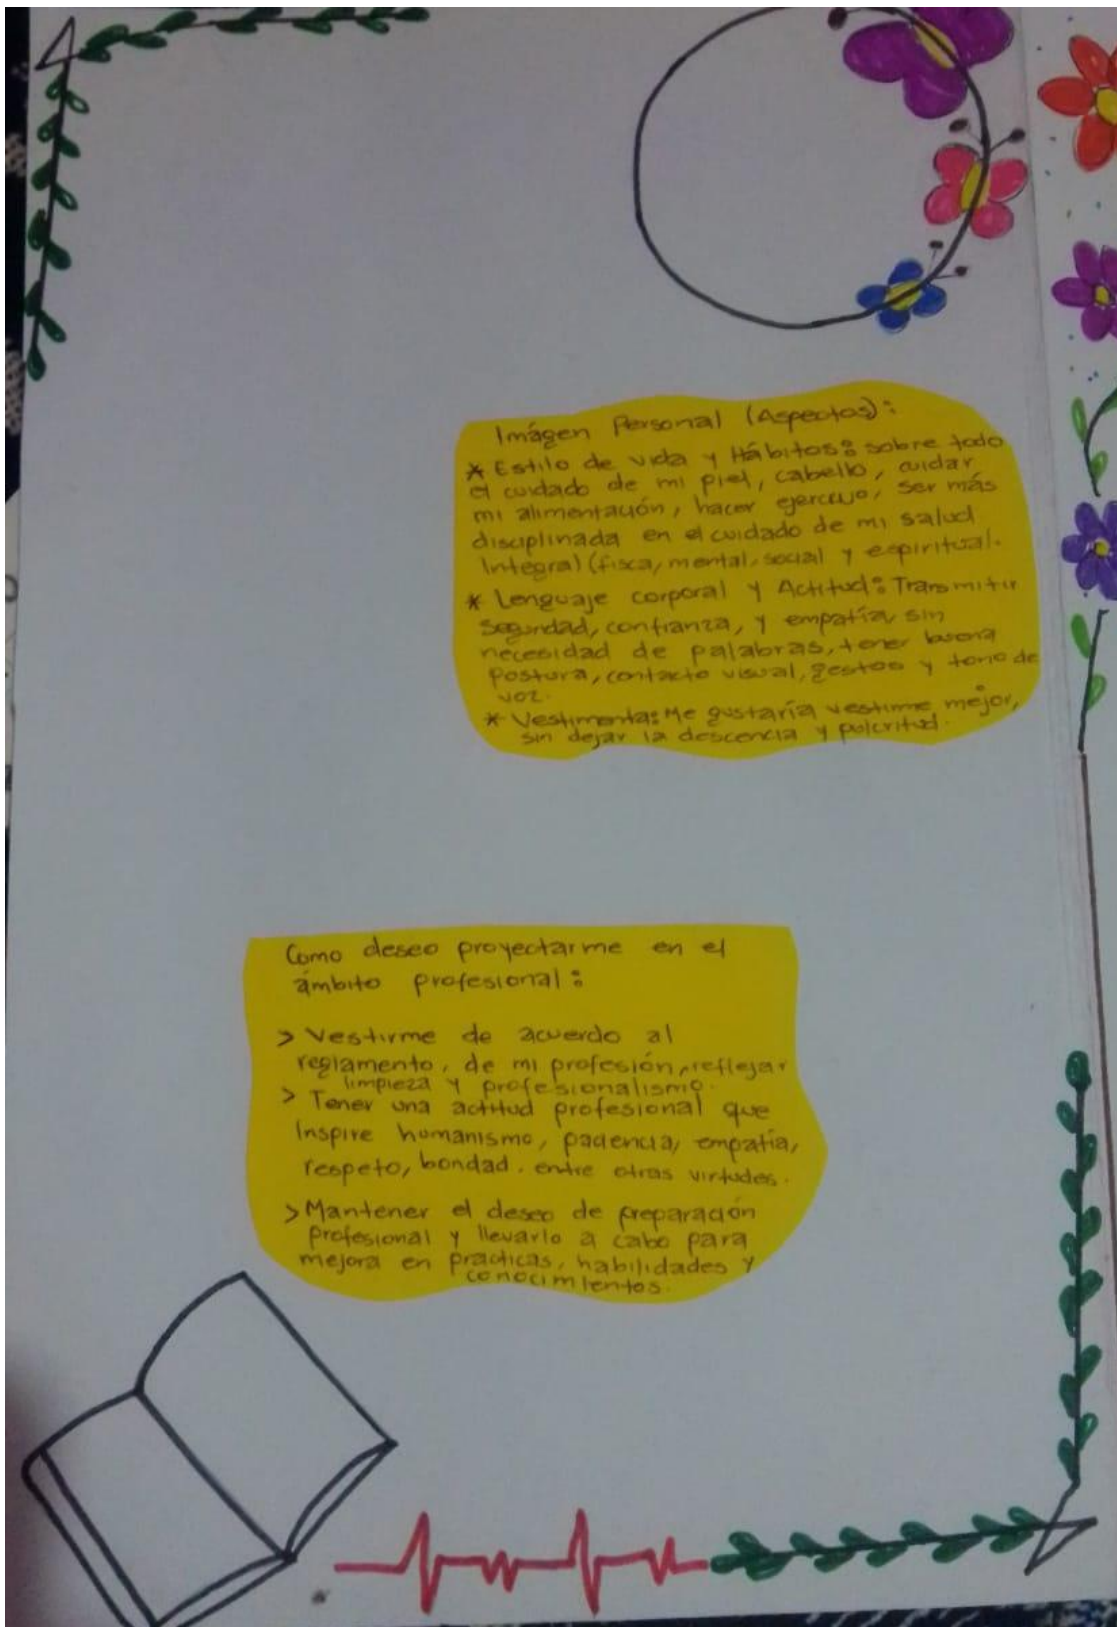 Imágen Personal (Aspectos):
* Estilo de vida y Hábitos: sobre todo
el cuidado de mi piel, cabello, cuidar
mi alimentación, hacer ejercicio, ser más
disciplinada en el cuidado de mi salud
Integral (fisca, mental, social y espiritual.
* Lenguaje corporal y Actitud: Transmitir
seguridad, confianza, y empatía, sin
necesidad de palabras, tener buena
postura, contacto visual, gestos y tono de
voz.
* Vestimenta: Me gustaría vestirme mejor,
sin dejar la descencia y pulcritud.
Como deseo proyectarme en el
ámbito profesional:
> Vestirme de acuerdo al
reglamento, de mi profesión, reflejar
limpieza y profesionalismo.
> Tener una actitud profesional que
Inspire humanismo, paciencia, empatía,
respeto, bondad. entre otras virtudes.
> Mantener el deseo de preparación
profesional y llevarlo a cabo para
mejora en practicas, habilidades y
conocimientos.